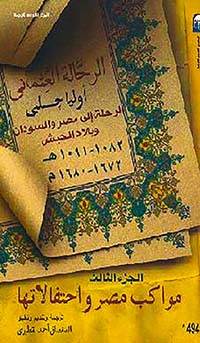 الرحالة العثماني
أوليا جلبي
الرحلة إلى مصر والسودان
وبلاد الحبش
١٠٨٢-١٠٩١هـ
١٦٧٢-١٦٨٠م
الجزء الثالث
مواكب مصر واحتفالاتها
ترجمة وتقديم وتعليق
الصفصافي أحمد القطوري
494